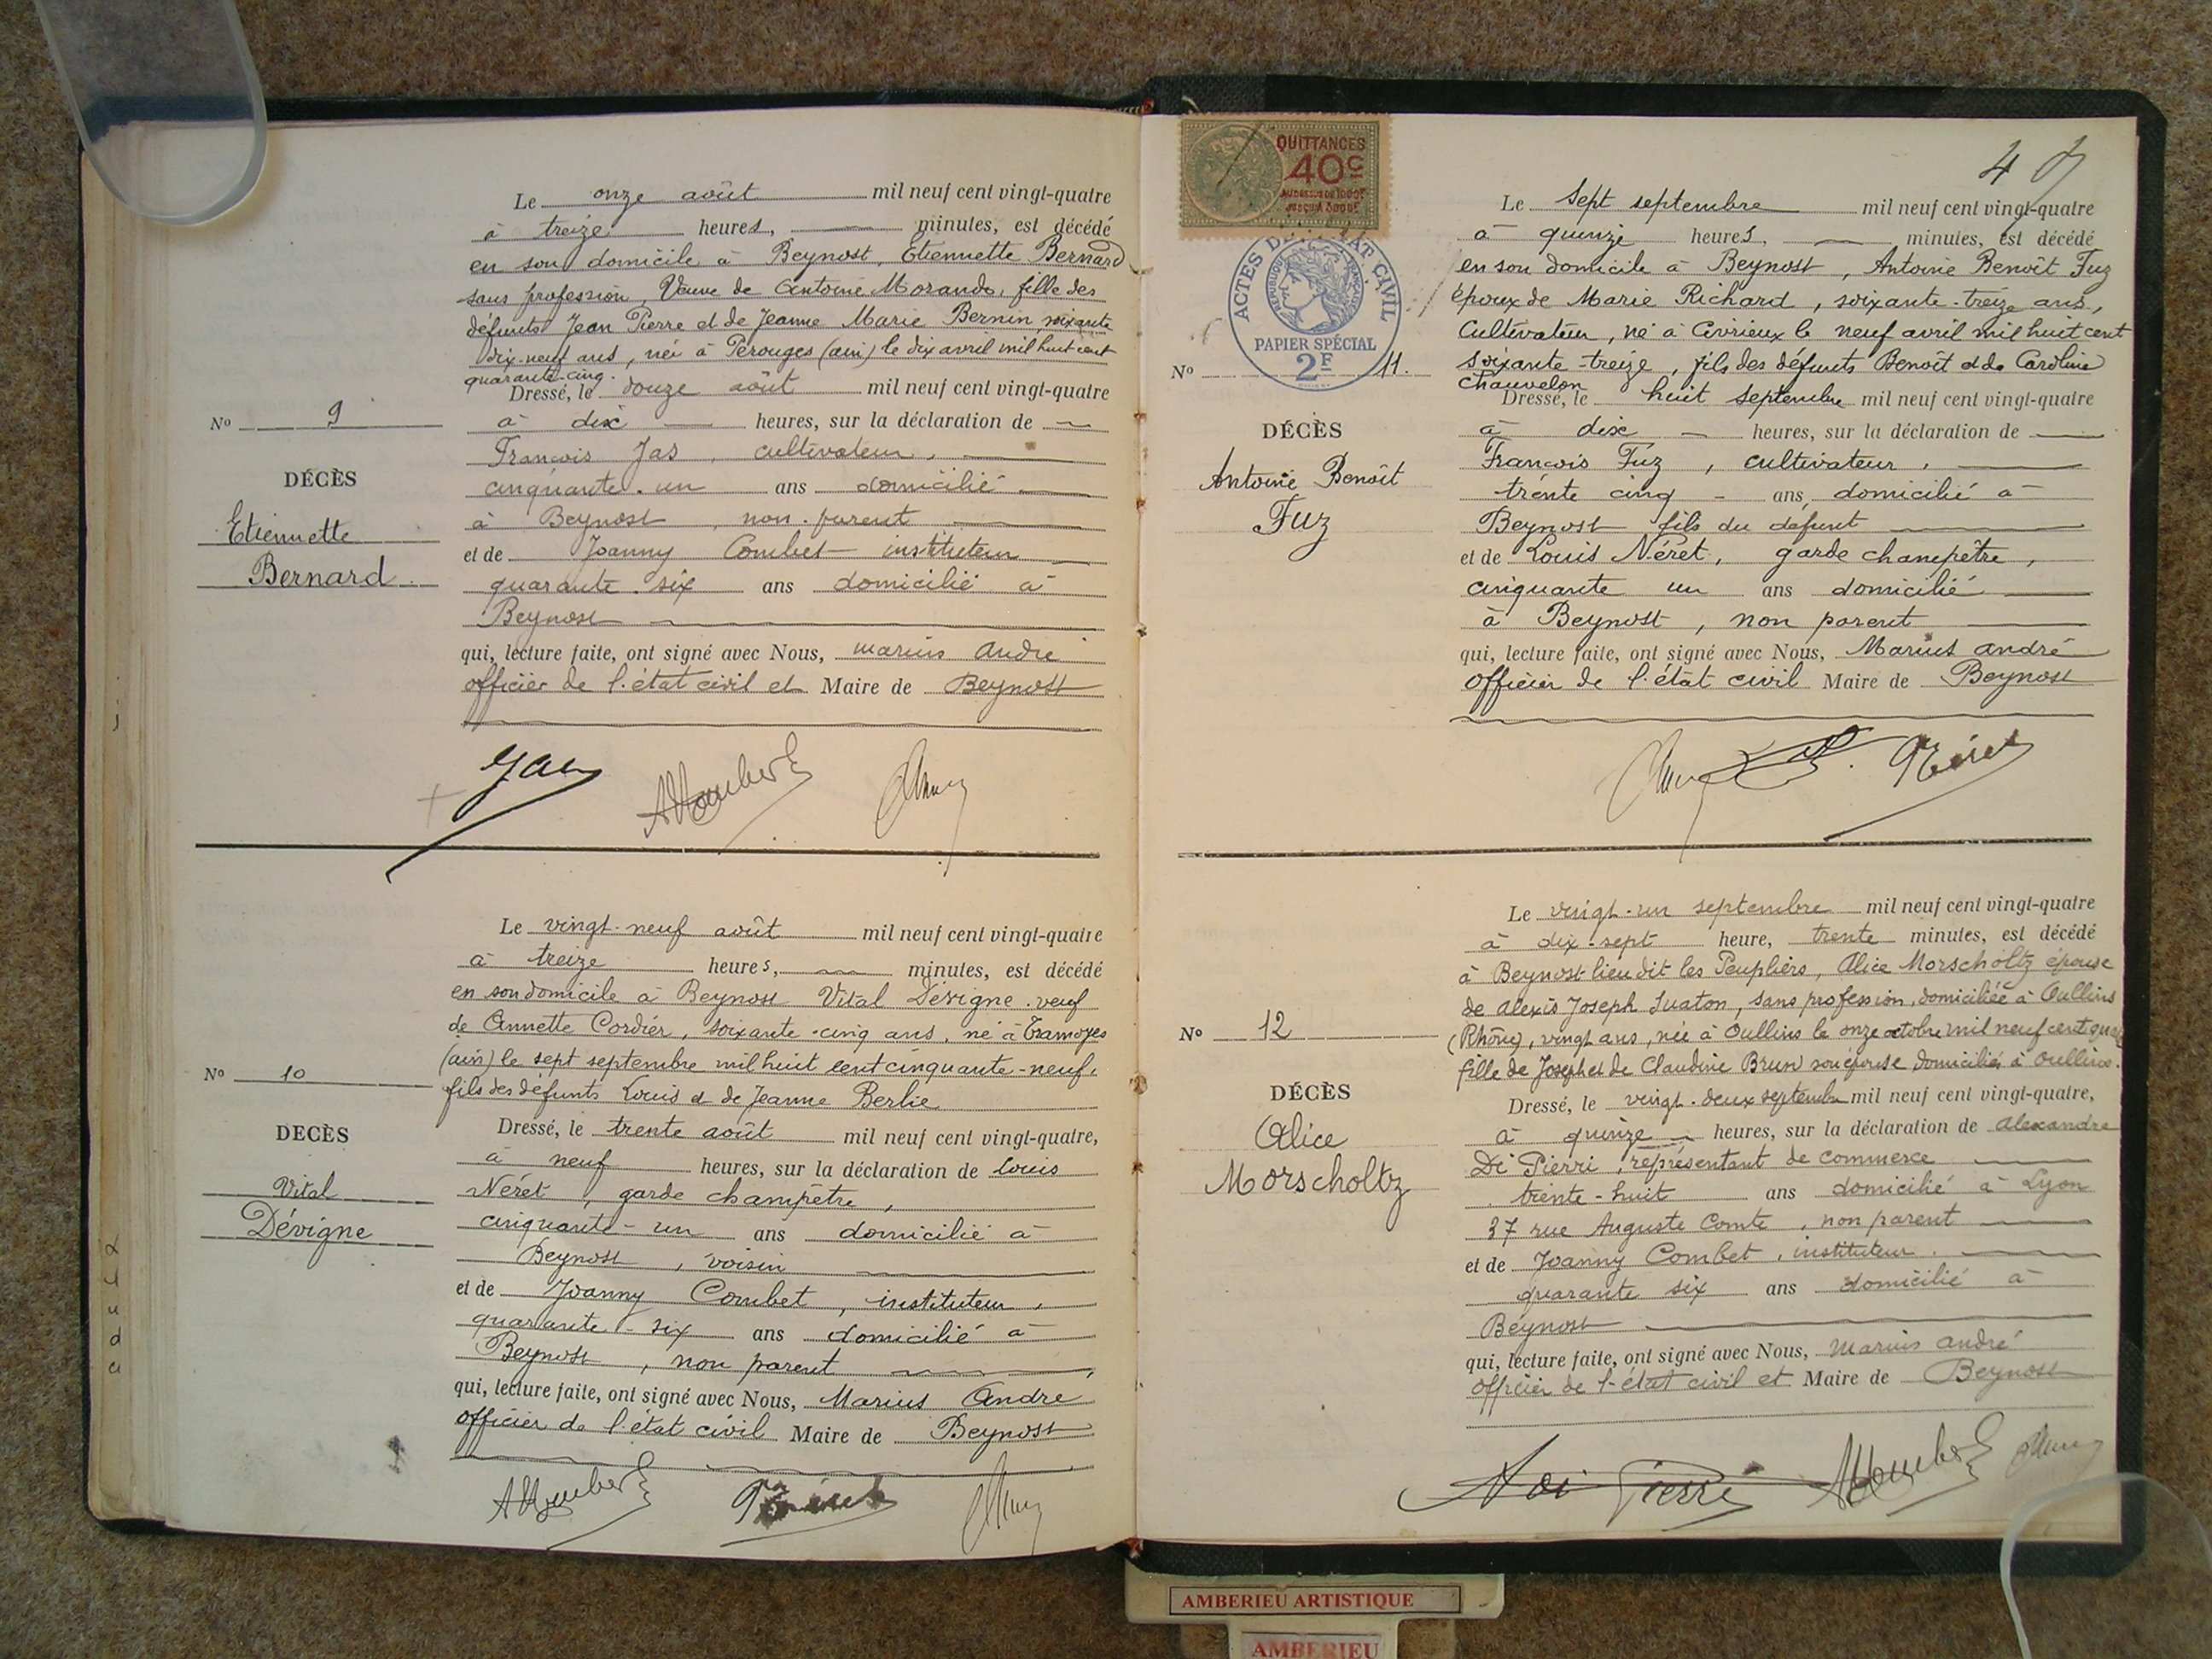 Le onze août mil neuf cent vingt-quatre
à treize heures, minutes, est décédé
en son domicile à Beynost, Etiennette Bernard
sans profession, Veuve de Antoine Morando, fille des
défunts Jean Pierre et de Jeanne Marie Bernin, soixante
dix-neuf ans, née à Pérouges (ain) le dix avril mil huit cent
quarante-cinq.
Dressé, le douze août mil neuf cent vingt-quatre
à dix heures, sur la déclaration de
François Jas, cultivateur,
cinquante-un ans domicilié
à Beynost, non-parent
et de Joanny Combet instituteur
quarante-six ans domicilié à
Beynost
qui, lecture faite, ont signé avec Nous, Marius André
officier de l'état civil et Maire de Beynost
No 9
DÉCÈS
Etiennette
Bernard
Le vingt-neuf août mil neuf cent vingt-quatre
à treize heures, minutes, est décédé
en son domicile à Beynost Vital Dévigne, veuf
de Annette Cordier, soixante-cinq ans, né à Tramoyes
(ain) le sept septembre mil huit cent cinquante-neuf,
fils des défunts Louis et de Jeanne Berlie
Dressé, le trente août mil neuf cent vingt-quatre,
à neuf heures, sur la déclaration de Louis
Néret, garde champêtre,
cinquante-un ans domicilié à
Beynost, voisin
et de Joanny Combet, instituteur,
quarante-six ans domicilié à
Beynost, non parent
qui, lecture faite, ont signé avec Nous, Marius André
officier de l'état civil Maire de Beynost
No 10
DÉCÈS
Vital
Dévigne
QUITTANCES
40c
ACTES DE L'ÉTAT CIVIL
RÉPUBLIQUE FRANÇAISE
PAPIER SPÉCIAL
2F
4
Le Sept septembre mil neuf cent vingt-quatre
à quinze heures, minutes, est décédé
en son domicile à Beynost, Antoine Benoît Fuz
époux de Marie Richard, soixante-treize ans,
Cultivateur, né à Civrieux le neuf avril mil huit cent
soixante-treize, fils des défunts Benoît et de Caroline
Chauvelon
Dressé, le huit septembre mil neuf cent vingt-quatre
à dix heures, sur la déclaration de
François Fuz, cultivateur,
trente cinq ans domicilié à
Beynost fils du défunt
et de Louis Néret, garde champêtre,
cinquante un ans domicilié
à Beynost, non parent
qui, lecture faite, ont signé avec Nous, Marius André
Officier de l'état civil Maire de Beynost
Néret
No 11.
DÉCÈS
Antoine Benoît
Fuz
Le vingt-un septembre mil neuf cent vingt-quatre
à dix-sept heure, trente minutes, est décédé
à Beynost lieu dit les Peupliers, Alice Morscholtz épouse
de Alexis Joseph Suaton, sans profession, domiciliée à Oullins
(Rhône), vingt ans, née à Oullins le onze octobre mil neuf cent quatre
fille de Joseph et de Claudine Brun son épouse domiciliés à Oullins.
Dressé, le vingt-deux septembre mil neuf cent vingt-quatre,
à quinze heures, sur la déclaration de Alexandre
Di Pierri, représentant de commerce
trente-huit ans domicilié à Lyon
37 rue Auguste Comte, non parent
et de Joanny Combet, instituteur.
quarante six ans domicilié à
Beynost
qui, lecture faite, ont signé avec Nous, Marius André
Officier de l'état civil et Maire de Beynost
No 12
DÉCÈS
Alice
Morscholtz
AMBERIEU ARTISTIQUE
AMBERIEU